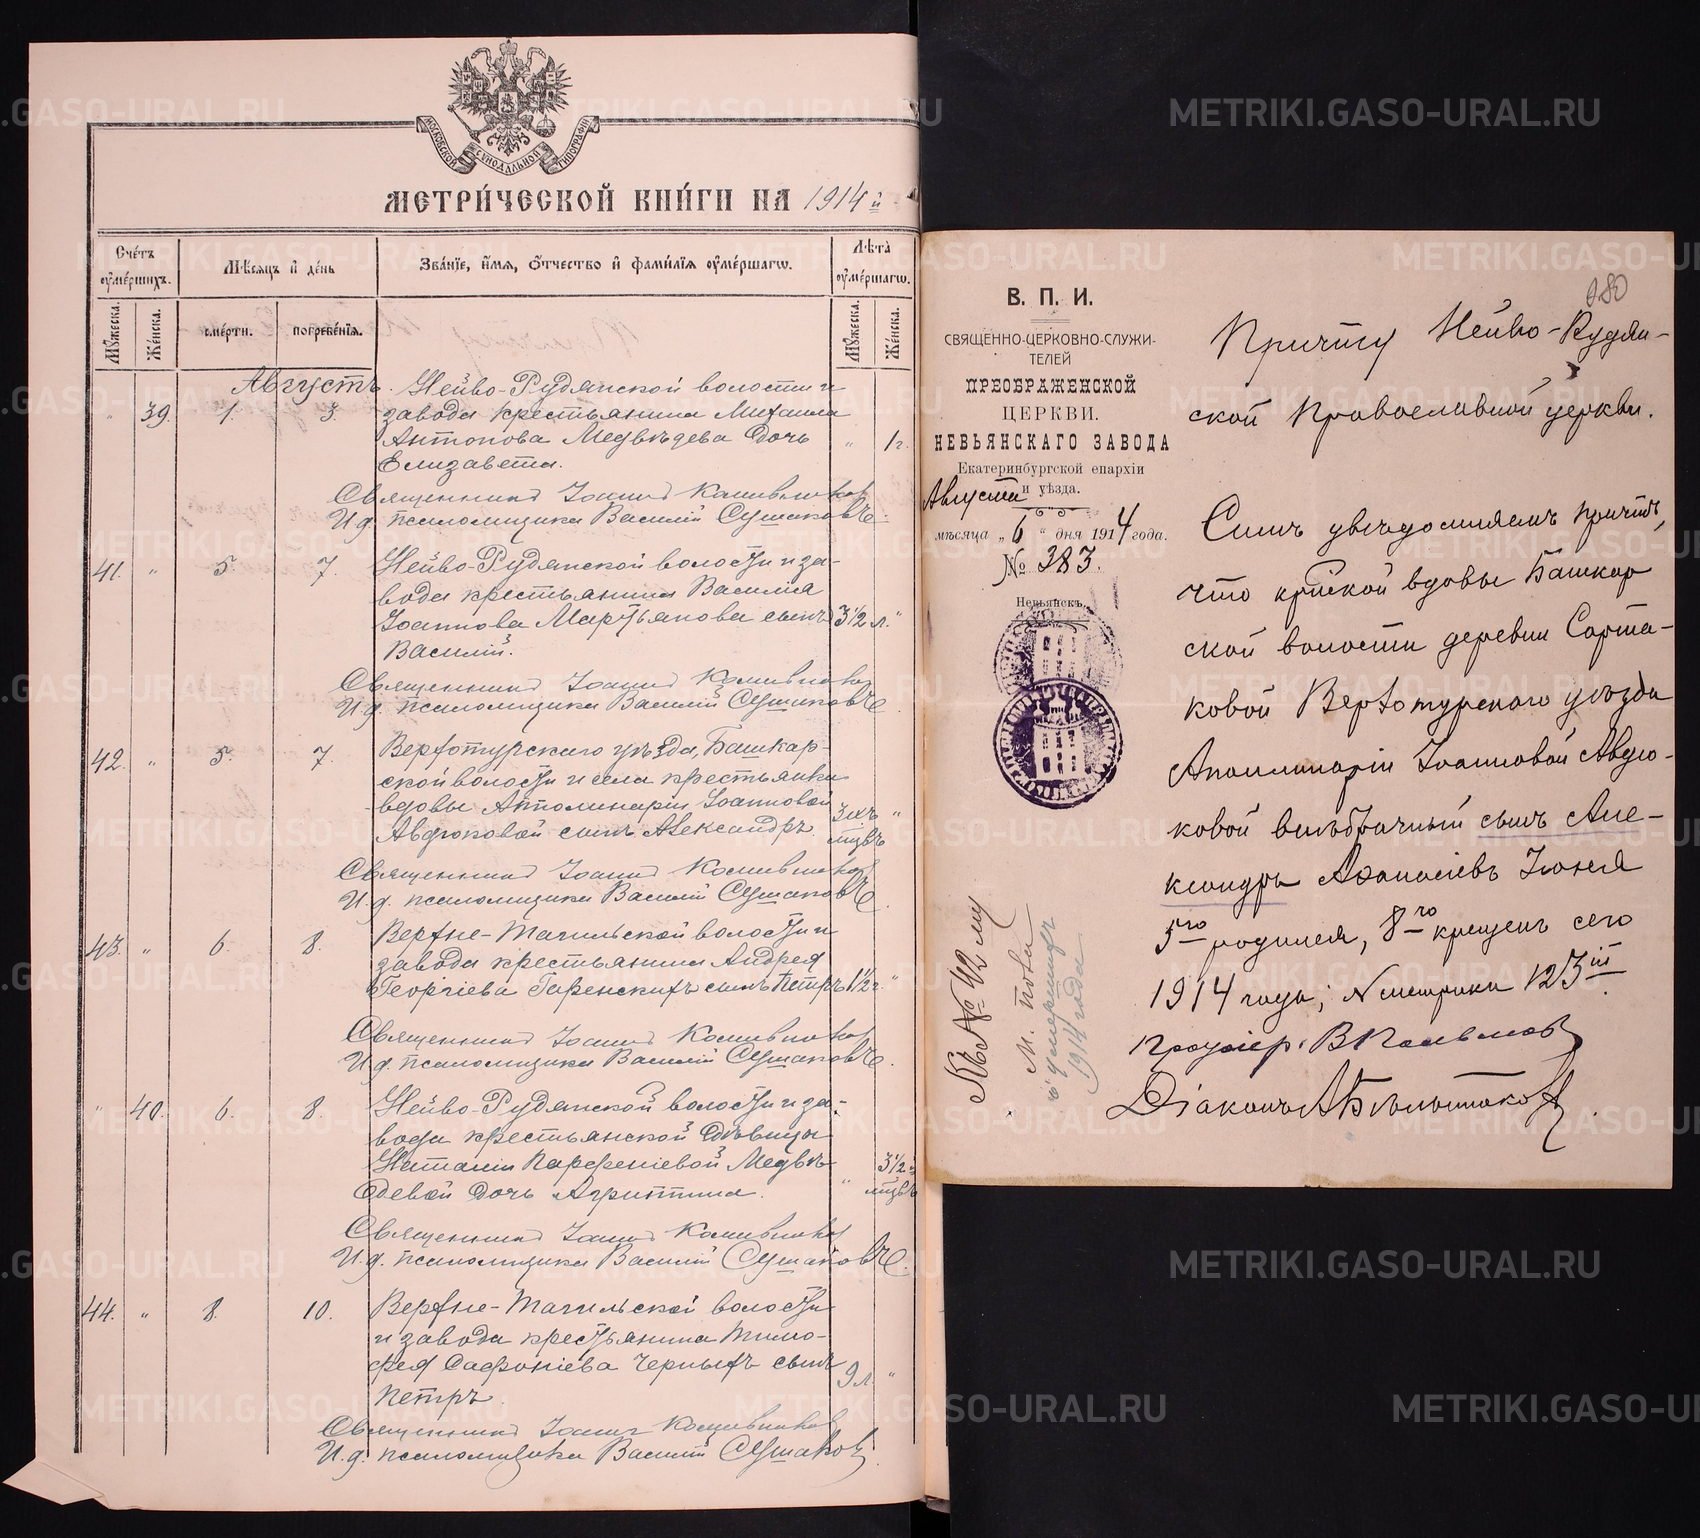 МОСКОВСКОЙ СѴНОДАЛЬНОЙ ТИПОГРАФІИ
МЕТРИ́ЧЕСКОЙ КНИ́ГИ НА 1914 й
Сче́тъ ᲂу҆ме́ршихъ.
Мѣ́сѧцъ и҆ де́нь
Зва́нїе, и҆́мѧ, ѻ҆́тчество и҆ фами́лїѧ ᲂу҆ме́ршагѡ.
Лѣта̀ ᲂу҆ме́ршагѡ.
Мꙋ́жеска.
Же́нска.
сме́рти.
погребе́нїѧ.
Мꙋ́жеска.
Же́нска.
Августъ.
Нейво-Рудянской волости и
" 39. 1. 3. завода крестьянина Михаила
Антонова Медвѣдева дочь " 1 г.
Елизавета.
Священникъ Іоаннъ
И. д. псаломщика Василій Сушаковъ
41. " 5. 7. Нейво-Рудянской волости и за-
вода крестьянина Василія
Іоаннова Мартьянова сынъ 3½ л. "
Василій.
Священникъ Іоаннъ
И. д. псаломщика Василій Сушаковъ
42. " 5. 7. Верхотурскаго уѣзда, Башкар-
ской волости и села крестьянки
вдовы Апполинаріи Іоанновой
Авдюковой сынъ Александръ. 2 мѣ "
сяцъ
Священникъ Іоаннъ
И. д. псаломщика Василій Сушаковъ
43. " 6. 8. Верхне-Тагильской волости и
завода крестьянина Андрея
Георгіева Гаренскихъ сынъ Петръ 1½ г. "
Священникъ Іоаннъ
И. д. псаломщика Василій Сушаковъ
" 40. 6. 8. Нейво-Рудянской волости и за-
вода крестьянской дѣвицы
Наталіи Парѳеніевой Медвѣ- 3½
девой дочь Агриппина. "
Священникъ Іоаннъ
И. д. псаломщика Василій Сушаковъ
44. " 8. 10. Верхне-Тагильской волости
и завода крестьянина Тимо-
фея Сафоніева Черныхъ сынъ 9 л. "
Петръ.
Священникъ Іоаннъ
И. д. псаломщика Василій Сушаковъ
В. П. И.
СВЯЩЕННО-ЦЕРКОВНО-СЛУЖИ-
ТЕЛЕЙ
ПРЕОБРАЖЕНСКОЙ
ЦЕРКВИ.
НЕВЬЯНСКАГО ЗАВОДА
Екатеринбургской епархіи
и уѣзда.
Августа
мѣсяца „ 6 “ дня 1914 года.
№ 383.
Невьянскъ.
Причту Нейво-Рудян-
ской Православной церкви.
Симъ увѣдомляемъ причтъ,
что кр-ской вдовы Башкар
ской волости деревни Сарта-
ковой Верхотурскаго уѣзда
Аполлинаріи Іоанновой Авдю-
ковой внѣбрачный сынъ Але-
ксандръ Аѳанасіевъ Іюня
5го родился, 8го крещенъ сего
1914 года; № метрики 123ій
Діаконъ
Къ № 42 му
М. пола
о умершихъ
1914 года
METRIKI.GASO-URAL.RU